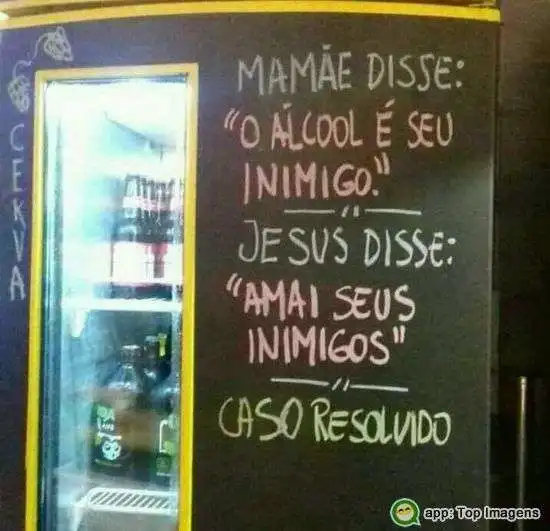 CEKVA
MAMÃE DISSE:
"O ÁLCOOL É SEU
INIMIGO."
JESUS DISSE:
"AMAI SEUS
INIMIGOS"
CASO RESOLVIDO
app: Top Imagens